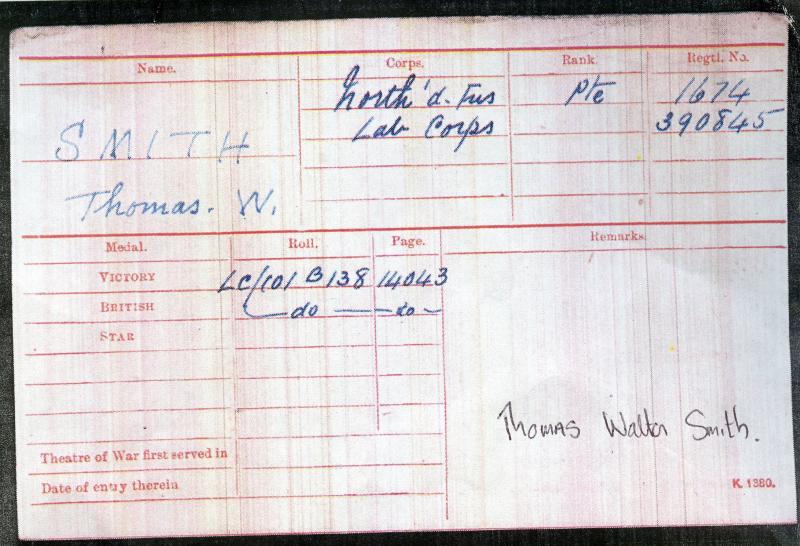 Name. Corps. Rank. Regtl. No.
North'd. Fus Pte 1674
Lab Corps 390845
SMITH
Thomas. W.
Medal. Roll. Page. Remarks.
VICTORY LC/101 B 138 14043
BRITISH do do
STAR
Thomas Walter Smith.
Theatre of War first served in
Date of entry therein
K. 1380.